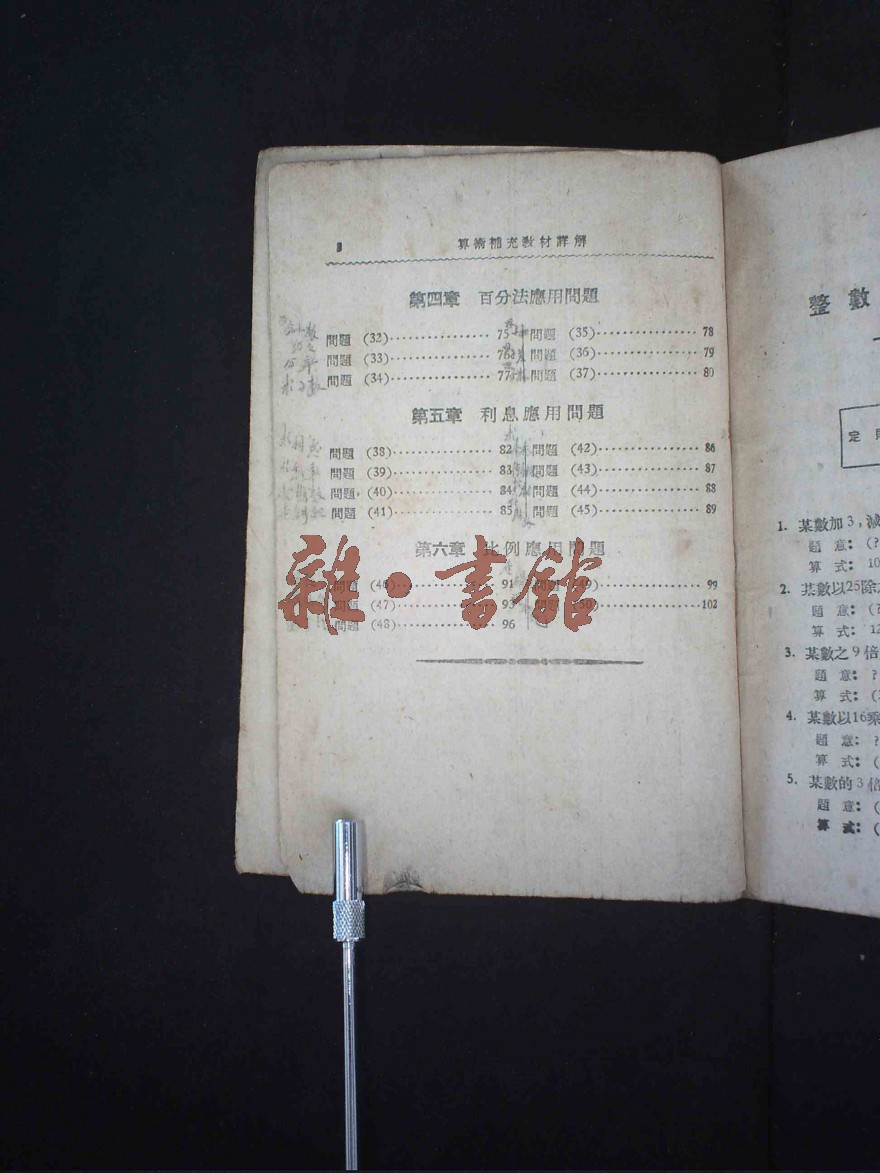 3 算術補充敎材詳解
第四章 百分法應用問題
問題 (32) 75 問題 (35) 78
問題 (33) 76 問題 (36) 79
問題 (34) 77 問題 (37) 80
第五章 利息應用問題
問題 (38) 82 問題 (42) 86
問題 (39) 83 問題 (43) 87
問題 (40) 84 問題 (44) 88
問題 (41) 85 問題 (45) 89
第六章 比例應用問題
問題 (46) 91 問題 (49) 99
問題 (47) 93 問題 (50) 102
問題 (48) 96
雜·書館
整數
定
1. 某數加3，減
題意：(?
算式：10
2. 某數以25除
題意：(?
算式：12
3. 某數之9倍
題意：?
算式：(
4. 某數以16乘
題意：?
算式：(
5. 某數的3倍
題意：(
算式：(